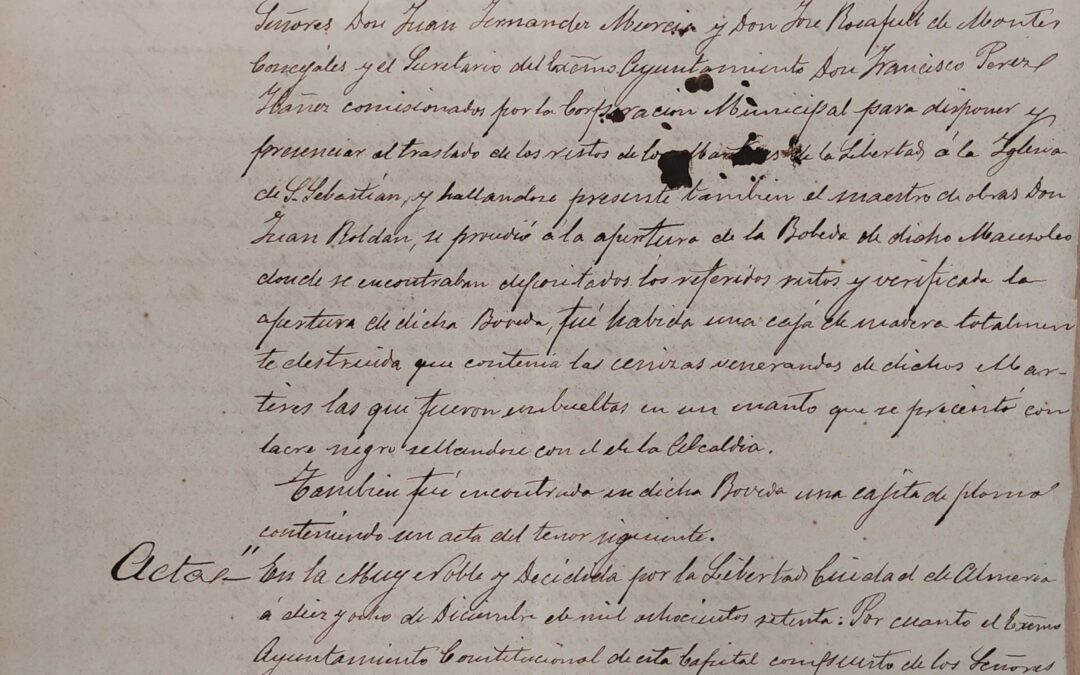 Señores Don Juan Fernandez Murcia y Don José Rocafull de Montes
Concejales y el Secretario del Exc̃mo Ayuntamiento Don Francisco Perez
Ibáñez comisionados por la Corporacion Municipal para disponer y
presenciar el traslado de los restos de los Martires de la Libertad á la Iglesia
de S. Sebastián, y hallandose presente tambien el maestro de obras Don
Juan Roldán, se procedió á la apertura de la Bobeda de dicho Mausoleo
donde se encontraban depositados los referidos restos y verificada la
apertura de dicha Boveda, fué habida una caja de madera totalmen
te destruida que contenia las cenizas venerandas de dichos Mar-
tires las que fueron embueltas en un manto que se precintó con
lacre negro sellandose con el de la Alcaldia.
Tambien fué encontrada en dicha Boveda una cajita de plomo
conteniendo un acta del tenor siguiente.
Acta" En la Muy Noble y Decidida por la Libertad Ciudad de Almeria
á diez y ocho de Diciembre de mil ochocientos setenta: Por cuanto el Exc̃mo
Ayuntamiento Constitucional de esta Capital compuesto de los Señores